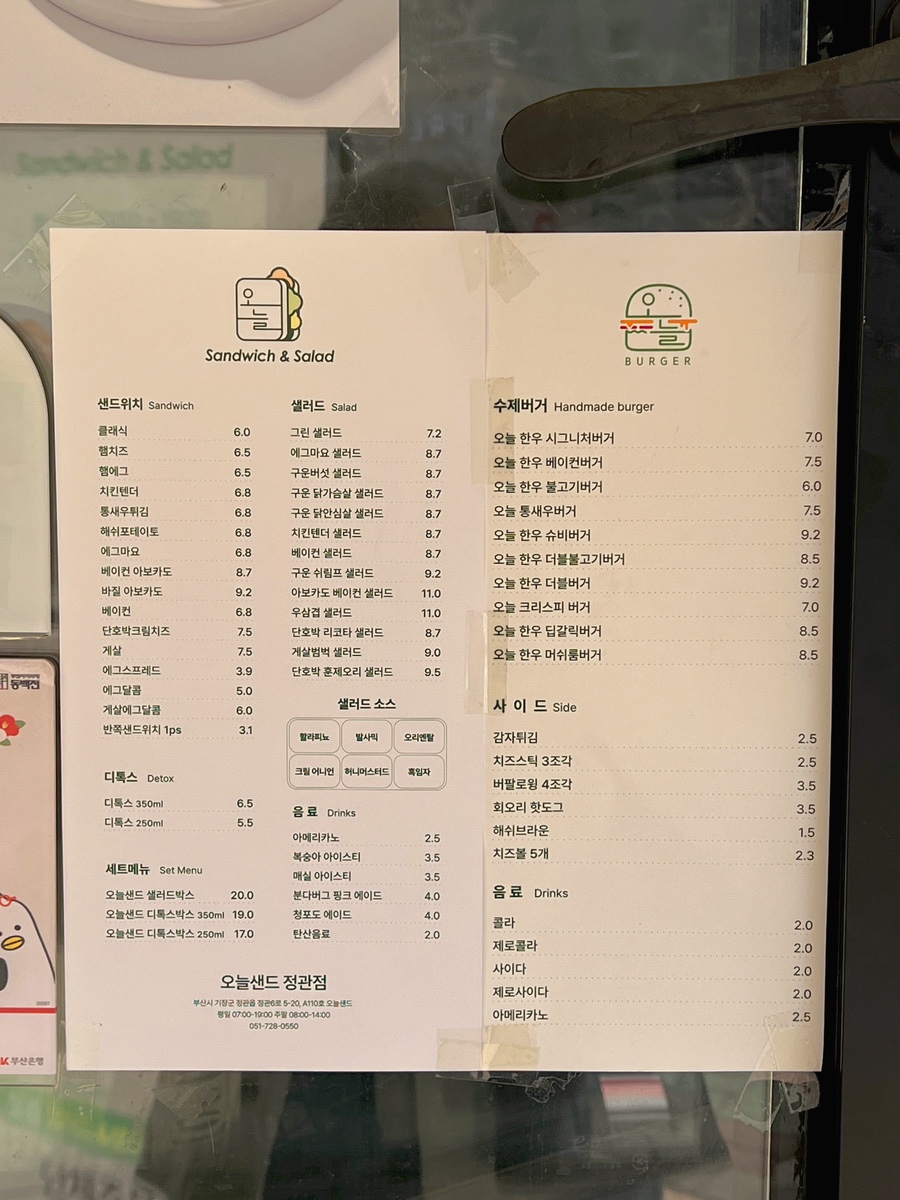 Sandwich & Salad
오늘
Sandwich & Salad
샌드위치 Sandwich
클래식 6.0
햄치즈 6.5
햄에그 6.5
치킨텐더 6.8
통새우튀김 6.8
해쉬포테이토 6.8
에그마요 6.8
베이컨 아보카도 8.7
바질 아보카도 9.2
베이컨 6.8
단호박크림치즈 7.5
게살 7.5
에그스프레드 3.9
에그달콤 5.0
게살에그달콤 6.0
반쪽샌드위치 1ps 3.1
디톡스 Detox
디톡스 350ml 6.5
디톡스 250ml 5.5
세트메뉴 Set Menu
오늘샌드 샐러드박스 20.0
오늘샌드 디톡스박스 350ml 19.0
오늘샌드 디톡스박스 250ml 17.0
샐러드 Salad
그린 샐러드 7.2
에그마요 샐러드 8.7
구운버섯 샐러드 8.7
구운 닭가슴살 샐러드 8.7
구운 닭안심살 샐러드 8.7
치킨텐더 샐러드 8.7
베이컨 샐러드 8.7
구운 쉬림프 샐러드 9.2
아보카도 베이컨 샐러드 11.0
우삼겹 샐러드 11.0
단호박 리코타 샐러드 8.7
게살범벅 샐러드 9.0
단호박 훈제오리 샐러드 9.5
샐러드 소스
할라피뇨 발사믹 오리엔탈
크림 어니언 허니머스터드 흑임자
음료 Drinks
아메리카노 2.5
복숭아 아이스티 3.5
매실 아이스티 3.5
분다버그 핑크 에이드 4.0
청포도 에이드 4.0
탄산음료 2.0
오늘샌드 정관점
부산시 기장군 정관읍 정관6로 5-20, A110호 오늘샌드
평일 07:00-19:00 주말 08:00-14:00
051-728-0550
오늘
BURGER
수제버거 Handmade burger
오늘 한우 시그니처버거 7.0
오늘 한우 베이컨버거 7.5
오늘 한우 불고기버거 6.0
오늘 통새우버거 7.5
오늘 한우 슈비버거 9.2
오늘 한우 더블불고기버거 8.5
오늘 한우 더블버거 9.2
오늘 크리스피 버거 7.0
오늘 한우 딥갈릭버거 8.5
오늘 한우 머쉬룸버거 8.5
사 이 드 Side
감자튀김 2.5
치즈스틱 3조각 2.5
버팔로윙 4조각 3.5
회오리 핫도그 3.5
해쉬브라운 1.5
치즈볼 5개 2.3
음료 Drinks
콜라 2.0
제로콜라 2.0
사이다 2.0
제로사이다 2.0
아메리카노 2.5
동백전
부산은행